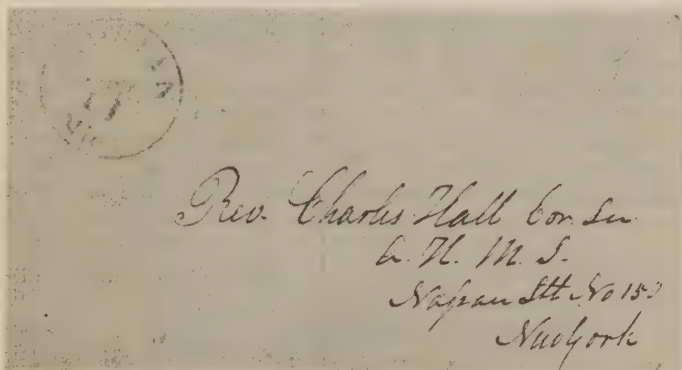 Rev. Charles Hall Cor. Sec
A. H. M. S.
Nassau Stt No 150
New York